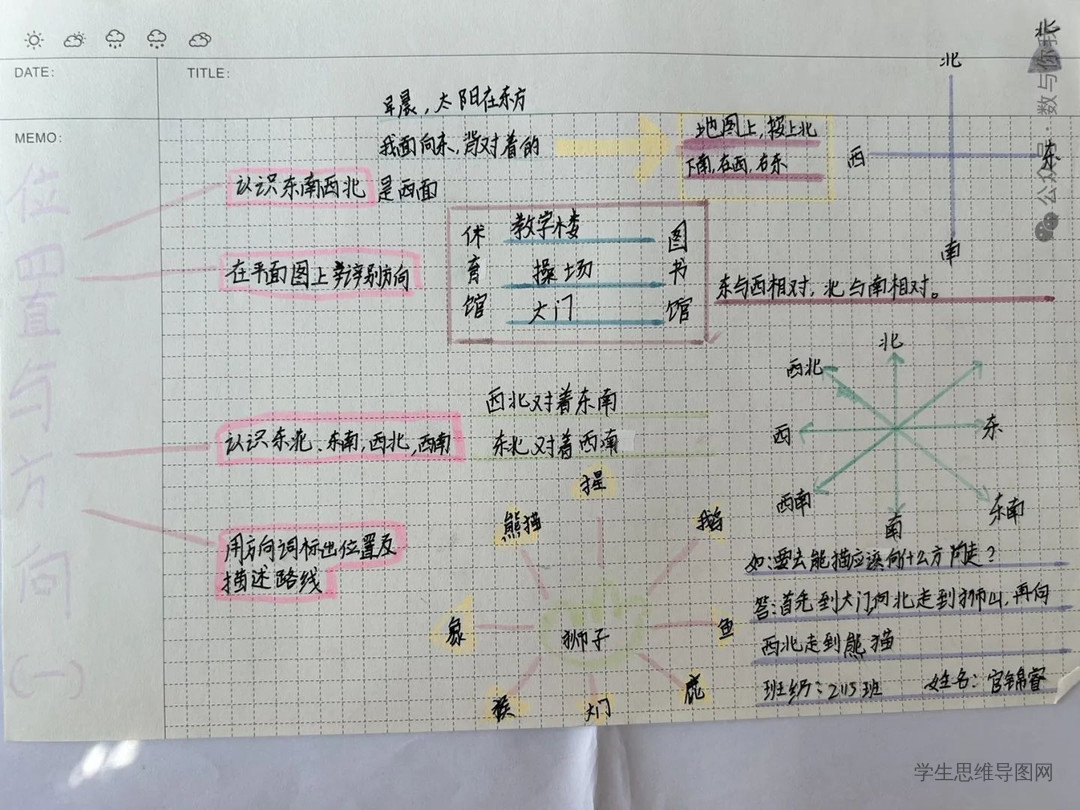 DATE:
TITLE:
MEMO:
位置与方向(一)
早晨，太阳在东方
我面向东，背对着的
是西面
认识东南西北
地图上，按上北
下南，左西，右东
北
西
东
南
北
公众号·数与你我
在平面图上辨别方向
体育馆
教学楼
操场
大门
图书馆
东与西相对，北与南相对。
认识东北、东南，西北，西南
西北对着东南
东北对着西南
北
西北
西
东
西南
南
东南
用方向词标出位置及
描述路线
猩
熊猫
鹅
象
狮子
鱼
猴
大门
鹿
如：要去熊猫应该向什么方向走？
答：首先到大门向北走到狮山，再向
西北走到熊猫
班级：2115班 姓名：官锦睿
学生思维导图网